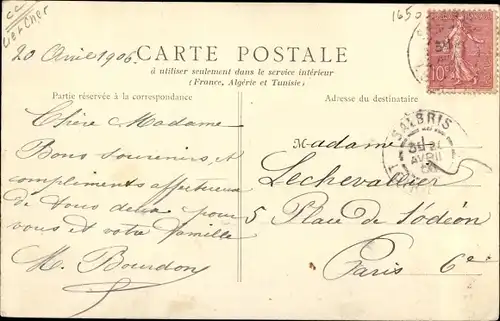 cc
vercher
1650
20 Avril 1906.
CARTE POSTALE
à utiliser seulement dans le service intérieur
(France, Algérie et Tunisie)
Partie réservée à la correspondance
Adresse du destinataire
Chère Madame
Bons souvenirs et
compliments affectueux
de tous deux pour
vous et votre famille
M. Bourdon
10c
SALBRIS
AVRIL
Madame
Lechevallier
5 Place de l'odéon
Paris 6e